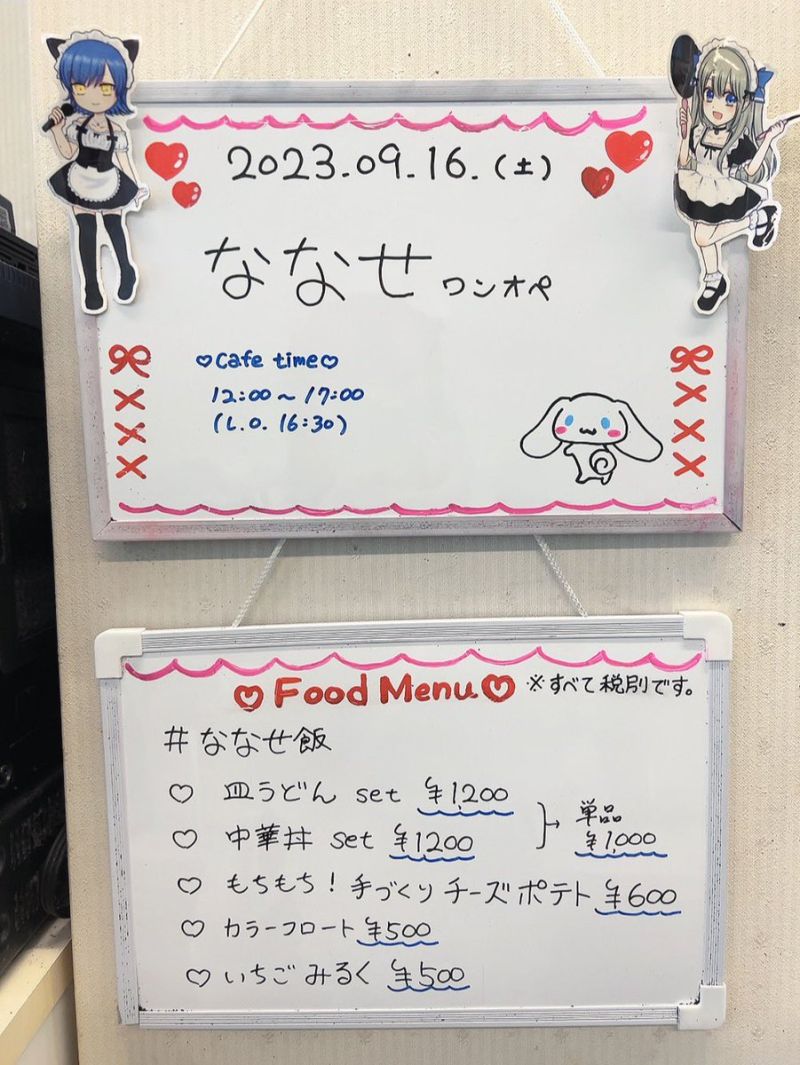 2023.09.16.(土)
ななせ ワンオペ
♡Cafe time♡
12:00～17:00
(L.O. 16:30)
♡Food Menu♡ ※すべて税別です。
#ななせ飯
♡ 皿うどん set ¥1,200
♡ 中華丼 set ¥1200
単品
¥1,000
♡ もちもち!手づくりチーズポテト ¥600
♡ カラーフロート ¥500
♡ いちごみるく ¥500